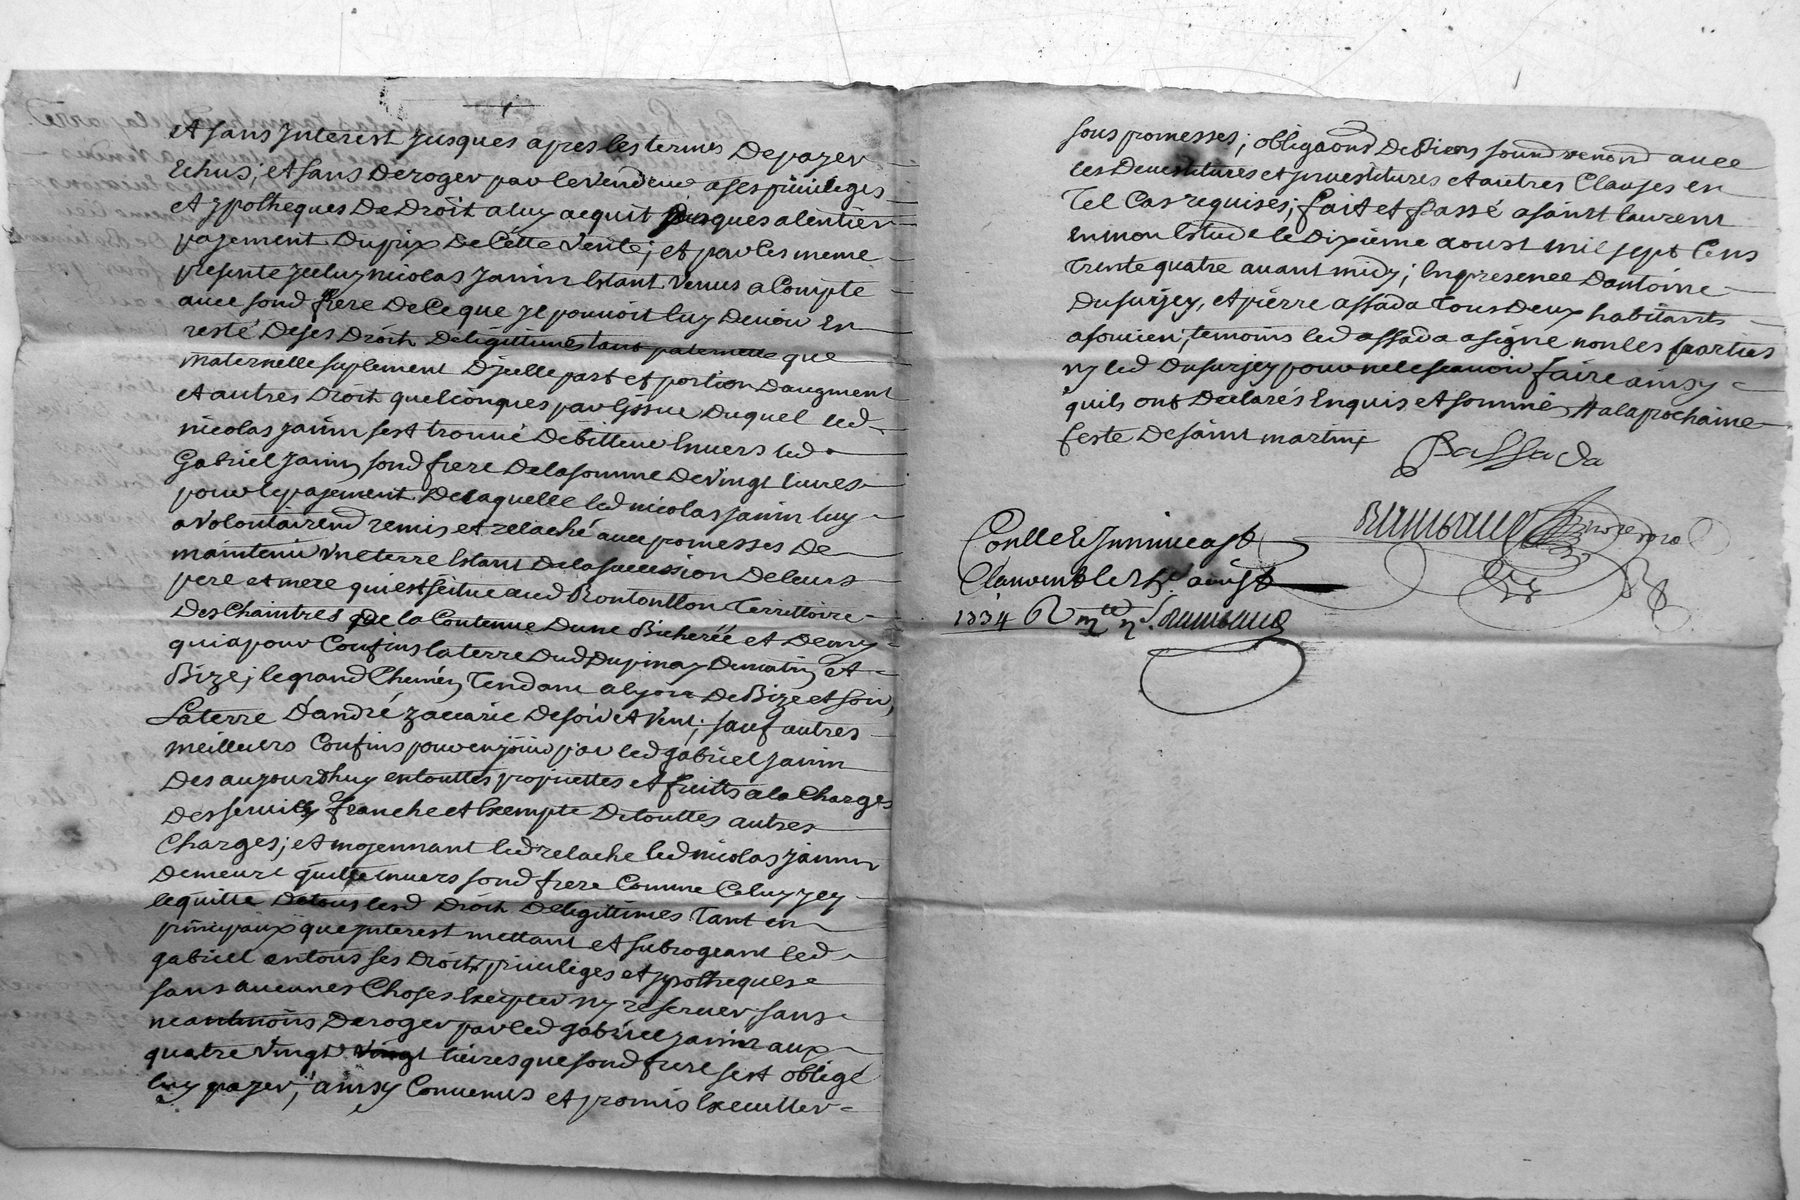 et sans Interest Jusques apres les termes De payer
Echus; et sans Deroger par le vendeur a ses privileges
et ypotheques De Droit a luy acquit Jusques alentier
payement Du prix De Cette vente; et par les meme
presente Jceluy nicolas Janin Estant venus a Compte
avec sond frere De Ce que Je pouvoit luy Devoir En
resté De ses Droit De legittimes tant paternelle que
maternelle suplement D'jcelle part et portion Daugment
et autres Droit quelconques par lissue Duquel led
nicolas Janin sest trouvé Debitteur Envers led
Gabriel Janin sond frere De la somme De vingt livres
pour le payement De laquelle led nicolas Janin luy
a volontairend remis et relaché avec promesses De
maintenir une terre Estant De la succession De leurs
pere et mere qui est scitue aud Territtoire
Des Chaintres De la Contenue Dune Bicherée et Demy
qui a pour Confins la terre Dud Dupinay Du matin et
Bize; le grand Chemin Tendant a lyon De Bize et soir,
La terre D'andré zaccarie De soir et vent; sauf autres
meilleurs Confins pour en joüir par led gabriel Janin
Des aujourdhuy en touttes proprietes et fruits a la Charges
Des servis franche et Exempte De touttes autres
Charges; et moyennant led relache led nicolas Janin
Demeure quitte Envers sond frere Comme Celuy jcy
le quitte De tous lesd Droit De legittimes Tant en
principaux que jnterest mettant et subrogeant led
gabriel en tous ses Droit privileges et ypotheques
sans aucunes Choses Excepter ny reserver, sans
neantmoins Deroger par led gabriel Janin aux
quatre vingt vingt livres que sond frere sest obligé
luy payer; ainsy Convenus et promis Executter
sous promesses; obligaons De Biens sound renond avec
les Devestitures et jnvestitures et autres Clauses en
Tel Cas requises; fait et passé a saint laurent
en mon Estude le Dixieme aoust mil sept Cens
Trente quatre avant midy; En presence Dantoine
Dusurjey, et pierre assada Tous Deux habitants
temoins led assada a signe non les parties
ny led Dusurjey pour ne le scavoir faire ainsy
quils ont Declarés Enquis et sommé, A la prochaine
feste De saint martin
P assada
1734